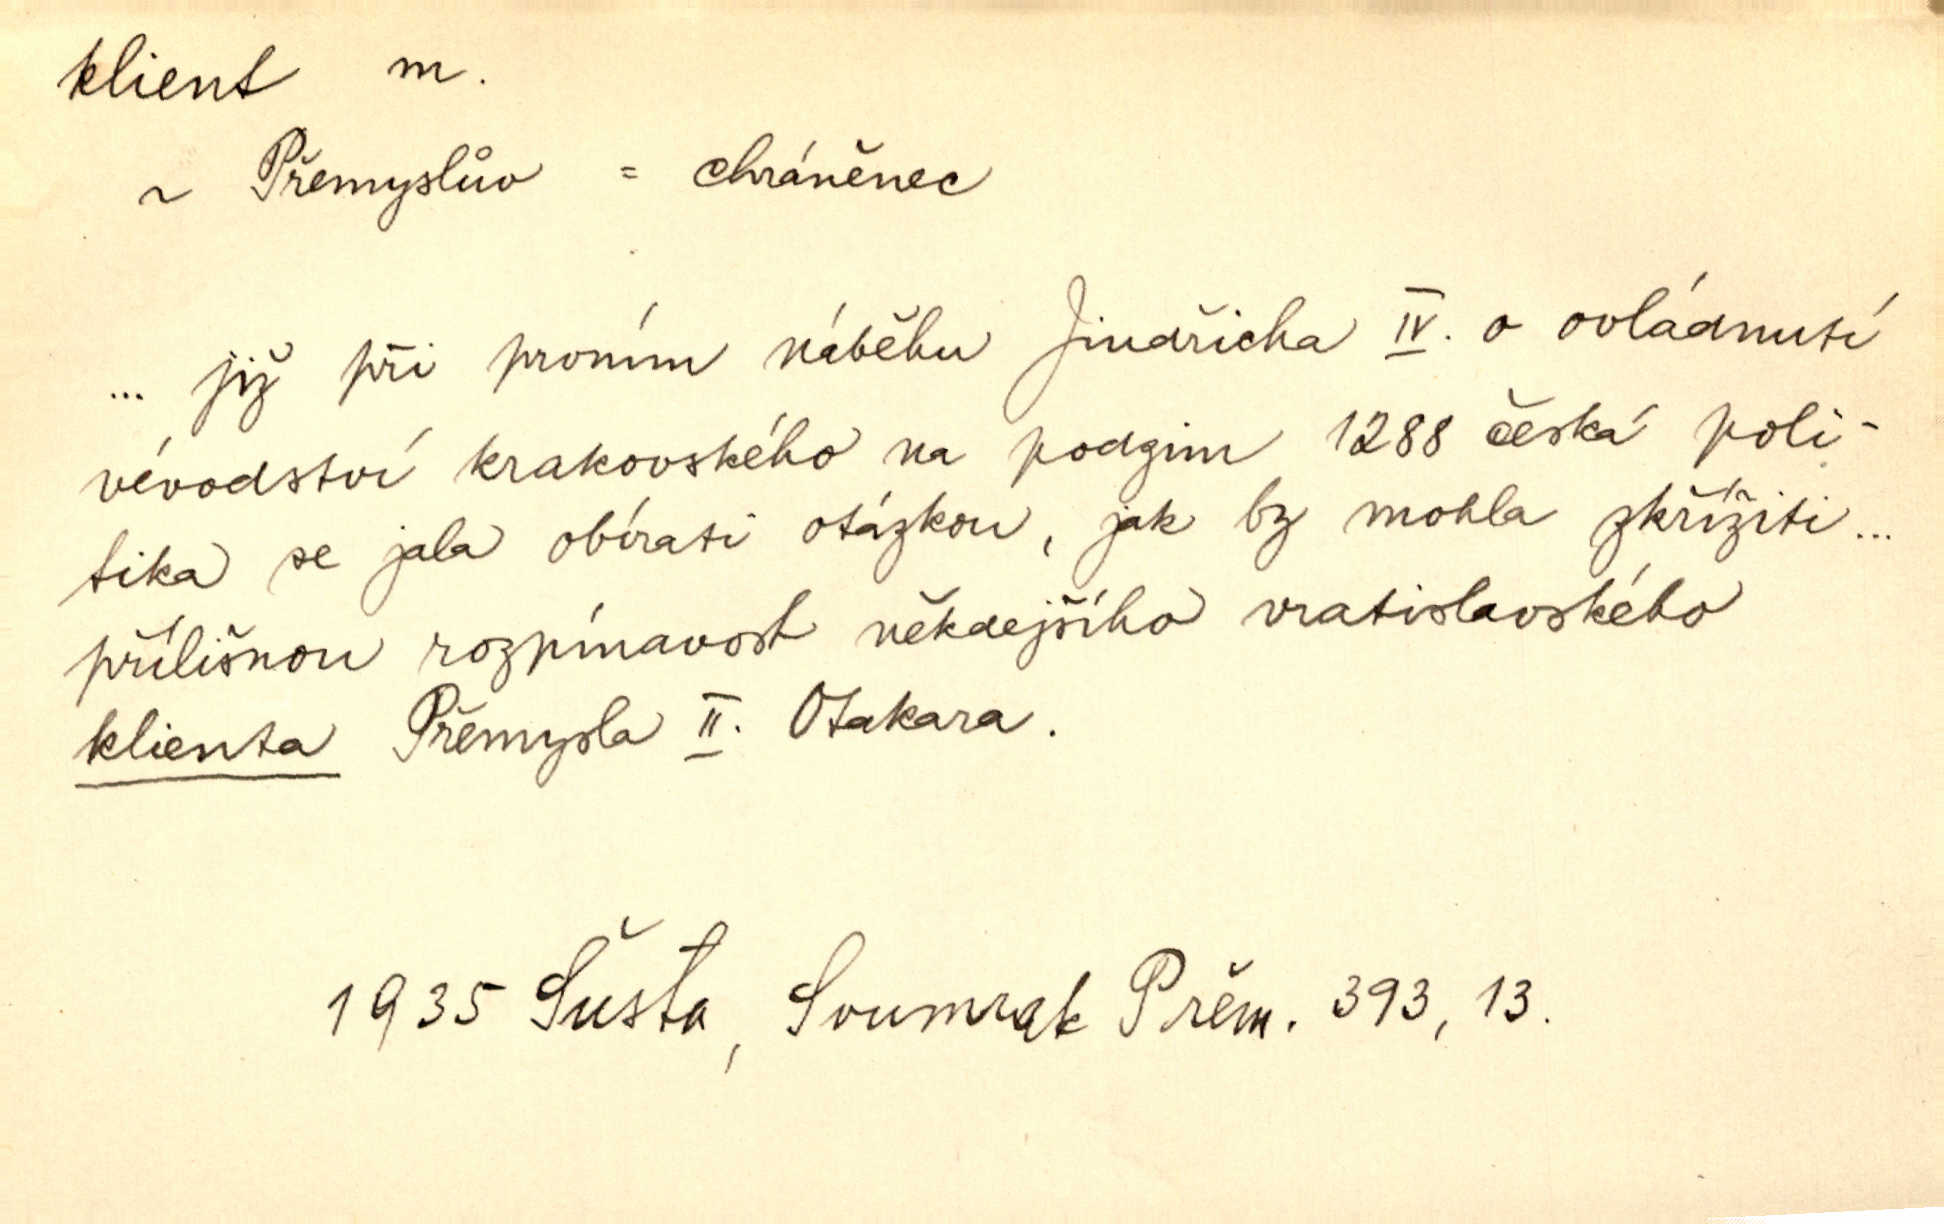 klient m.
~ Přemyslův = chráněnec
... již při prvním náběhu Jindřicha IV. o ovládnutí
vévodství krakovského na podzim 1288 česká poli-
tika se jala obírati otázkou, jak by mohla zkřížiti ...
přílišnou rozpínavost někdejšího vratislavského
klienta Přemysla II. Otakara.
1935 Šusta, Soumrak Přem. 393, 13.